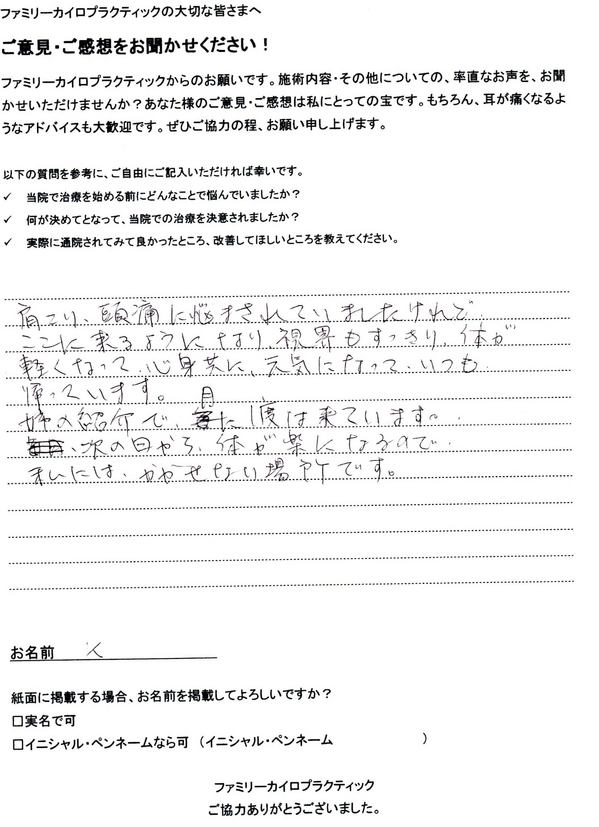 ファミリーカイロプラクティックの大切な皆さまへ
ご意見・ご感想をお聞かせください！
ファミリーカイロプラクティックからのお願いです。施術内容・その他についての、率直なお声を、お聞
かせいただけませんか？あなた様のご意見・ご感想は私にとっての宝です。もちろん、耳が痛くなるよ
うなアドバイスも大歓迎です。ぜひご協力の程、お願い申し上げます。
以下の質問を参考に、ご自由にご記入いただければ幸いです。
✓ 当院で治療を始める前にどんなことで悩んでいましたか？
✓ 何が決めてとなって、当院での治療を決意されましたか？
✓ 実際に通院されてみて良かったところ、改善してほしいところを教えてください。
肩こり、頭痛に悩まされていましたけれど
ここに来るようになり、視界もすっきり、体が
軽くなって、心身共に、元気になって、いつも
帰っています。
姉の紹介で、月に1度は来ています。
次の日から、体が楽になるので
私には、かかせない場所です。
お名前
紙面に掲載する場合、お名前を掲載してよろしいですか？
□実名で可
□イニシャル・ペンネームなら可 （イニシャル・ペンネーム ）
ファミリーカイロプラクティック
ご協力ありがとうございました。